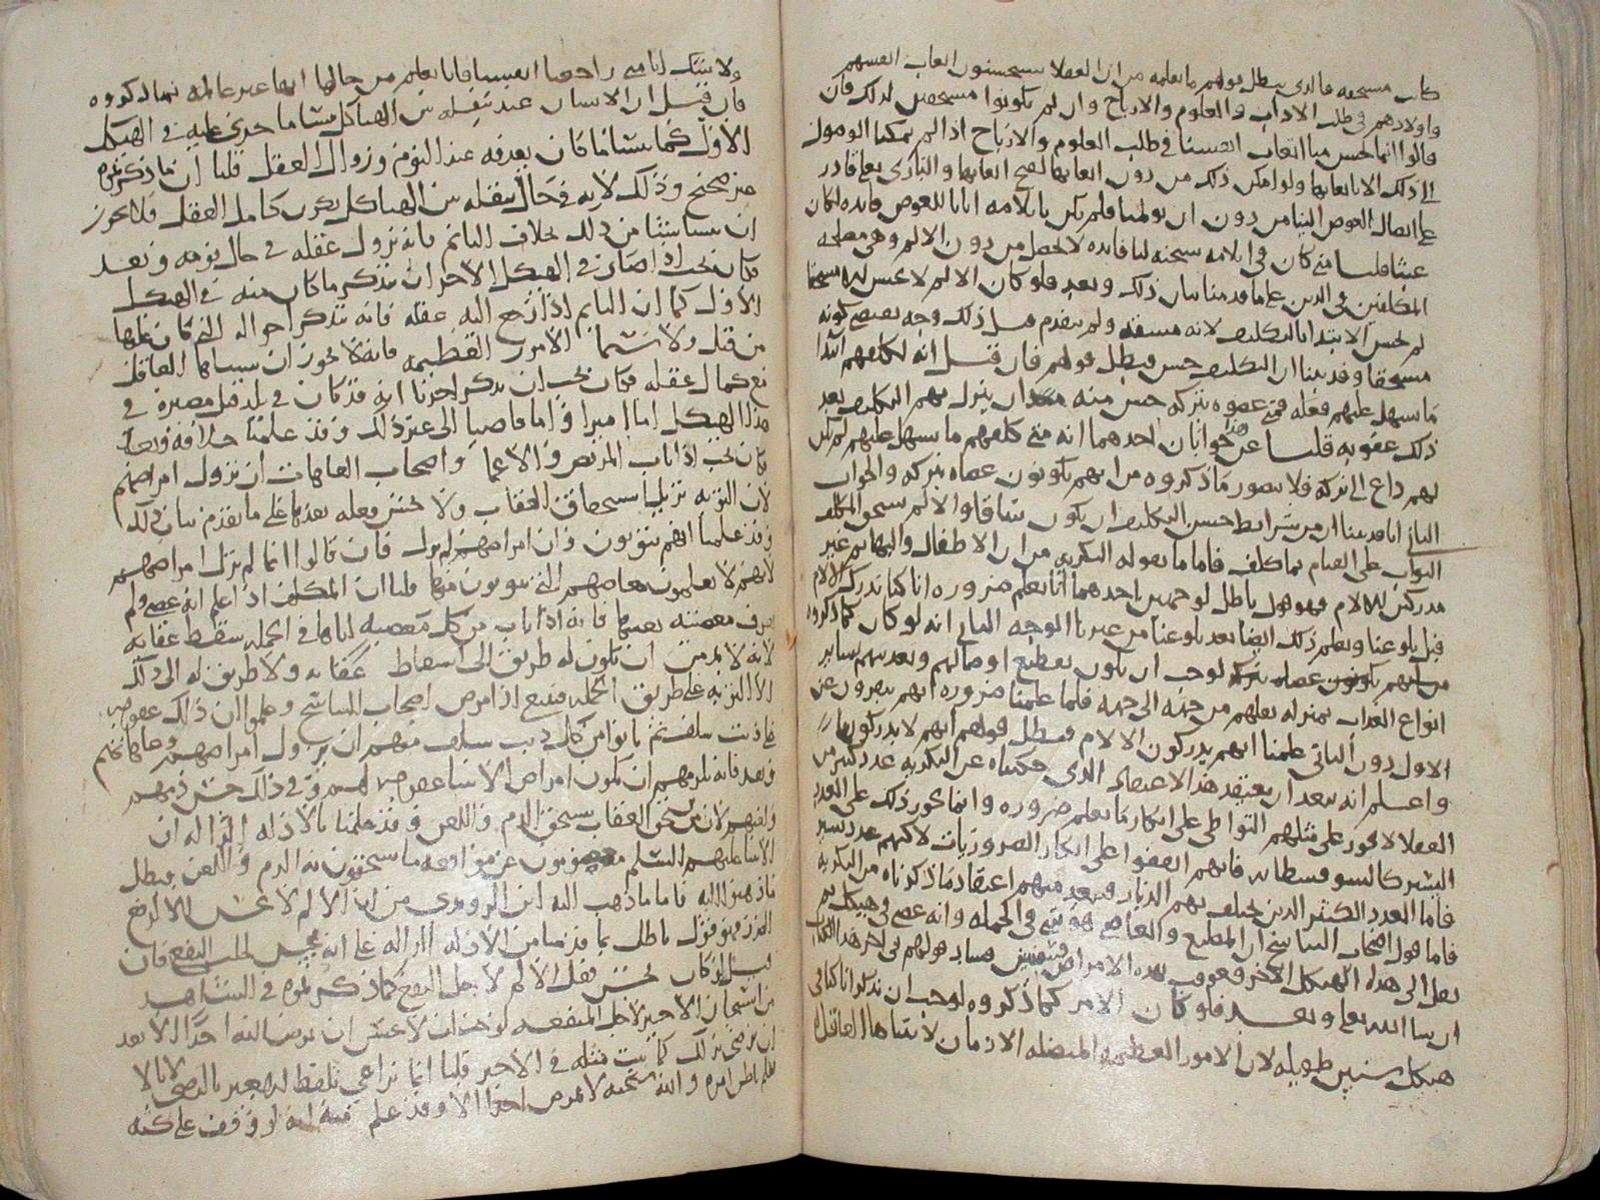 كانت مستحقه فالذى يبطل قولهم ما نعلمه من ان العقلا يستحسنون اتعاب انفسهم
واولادهم فى طلب الاداب والعلوم والارباح وان لم يكونوا مستحقين لذلك فان
قالوا انما حسن منا اتعاب انفسنا فى طلب العلوم والارباح اذا لم يمكنا الوصول
الى ذلك الا باتعابها ولو امكن ذلك من دون اتعابها لقبح اتعابها والبارى تعالى قادر
على ايصال العوض الينا من دون ان يولمنا فلم يكن بايلامه ايانا للعوض فايده لكان
عبثا قلنا متى كان فى ايلامه سبحنه لنا فايده لا تحصل من دون الالم وهى مصلحه
المكلفين فى الدين على ما قدمنا بيان ذلك وبعد فلو كان الالم لا يحسن الا مستحقا
لم يحسن الابتدا بالتكليف لانه مشقه ولم يتقدم قبل ذلك وجه يقتضى كونه
مستحقا وقد بينا ان التكليف حسن فبطل قولهم فان قيل انه كلفهم ابتدا
ما يسهل عليهم فعله فمتى عصوه بتركه حسن منه ان ينزل بهم التكليف بعد
ذلك عقوبه قلنا عن هذا جوابان احدهما انه متى كلفهم ما يسهل عليهم لم يكن
بهم داع الى تركه فلا يتصور ما ذكروه من انهم يكونون عصاه بتركه والجواب
الثانى انا قد بينا ان من شرايط حسن التكليف ان يكون شاقا والا لم يستحق المكلف
الثواب على القيام بما كلف فاما ما يقوله البكريه من ان الاطفال والبهايم غير
مدركين للالام فهو قول باطل لوجهين احدهما انا نعلم ضروره انا كنا ندرك الالام
قبل بلوغنا ونعلم ذلك ايضا بعد بلوغنا من غيرنا الوجه الثانى انه لو كان كما ذكروه
لوجب ان يكون تقطيع اوصالهم وتعذيبهم بساير
انواع العذاب بمنزله نقلهم من جهه الى جهه فلما علمنا ضروره انهم ينفرون عن
الاول دون الثانى علمنا انهم يدركون الالام فبطل قولهم انهم لا يدركونها
واعلم انه يبعد ان يعتقد هذا الاعتقاد الذى حكيناه عن البكريه عدد كثير من
العقلا لا يجوز على مثلهم التواطى على انكار ما يعلم ضروره وانما يجوز ذلك على العدد
اليسير كالسوفسطائيه فانهم اتفقوا على انكار الضروريات لانهم عدد يسير
فاما العدد الكثير الذين تختلف بهم الديار فيبعد منهم اعتقاد ما ذكرناه من البكريه
فاما قول اصحاب التناسخ ان المطيع والعاصى هو شى فى الجمله وانه عصى فى هيكل ثم
نقل الى هذا الهيكل الاخر فعوقب بهذه الامراض فسنبين فساد قولهم فى اخر هذا الكتاب
ان شا الله تعالى وبعد فلو كان الامر كما ذكروه لوجب ان نذكر انا كنا فى
هيكل سنين طويله لان الامور العظيمه المتصله الازمان لا ينساها العاقل
ولا يشك انا متى راجعنا انفسنا فانا نعلم من حالها انها غير عالمه بما ذكروه
فان قيل ان الانسان عند نقله من الهياكل ينسا ما جرى عليه فى الهيكل
الاول كما ينسا ما كان يعرفه عند النوم وزوال العقل قلنا ان ما ذكرتموه
غير صحيح وذلك لانه فى حال تنقله من الهياكل يكون كامل العقل فلا يجوز
ان ينسا شيئا من ذلك بخلاف النايم فانه يزول عقله فى حال نومه وبعد
فكان يجب اذا صار فى الهيكل الاخر ان يتذكر ما كان منه فى الهيكل
الاول كما ان النايم اذا رجع اليه عقله فانه يتذكر احواله التى كان عليها
من قبل ولا سيما الامور العظيمه فانه لا يجوز ان ينساها العاقل
مع كمال عقله فكان يجب ان يذكر احدنا انه قد كان فى بلد قبل مصيره فى
هذا الهيكل اما اميرا واما قاضيا الى غير ذلك وقد علمنا خلافه وبعد
فكان يجب اذا تاب المريض والاعما واصحاب العاهات ان تزول امراضهم
لان التوبه تزيل استحقاق العقاب ولا يحسن فعله بعدها على ما تقدم بيان ذلك
وقد علمنا انهم يتوبون وان امراضهم لم تزل فان قالوا انما لم تزل امراضهم
لانهم لا يعلمون معاصيهم التى يتوبون منها قلنا ان المكلف اذا علم انه عصى ولم
يعرف معصيته بعينها فانه اذا تاب من كل معصيه اتاها فى الجمله سقط عقابه
لانه لا بد من ان يكون له طريق الى اسقاط عقابه ولا طريق له الى ذلك
الا التوبه على طريق الجمله فمتى اذا مرض اصحاب التناسخ وعلموا ان ذلك عقوبه
على ذنب سلف ثم تابوا من كل ذنب سلف منهم ان تزول امراضهم وعاهاتهم
وبعد فانه يلزمهم ان تكون امراض الانبيا عقوبه لهم وفى ذلك حسن ذمهم
ولعنهم لان من يستحق العقاب يستحق الذم واللعن وقد علمنا بالادله الواضحه ان
الانبيا عليهم السلم معصومون عن مواقعه ما يستحقون به الذم واللعن فبطل
ما ذهبوا اليه فاما ما ذهب اليه ابن الروندى من ان الالم لا يحسن الا لدفع
الضرر فهو قول باطل بما قدمنا من الادله الداله على انه يحسن لجلب النفع فان
قيل لو كان يحسن فعل الالم لاجل النفع كما ذكرتموه فى الشاهد
من استيجار الاجير لاجل المنفعه لوجب ان لا يحسن ان يمرض الله احدا الا بعد
ان يرضى بذلك كما يثبت مثله فى الاجير قلنا انما يراعى تلفظ الاجير بالرضى لانا لا
نعلم باطن امره والله سبحنه لا يمرض احدا الا وقد علم منه انه لو وقف على كنه